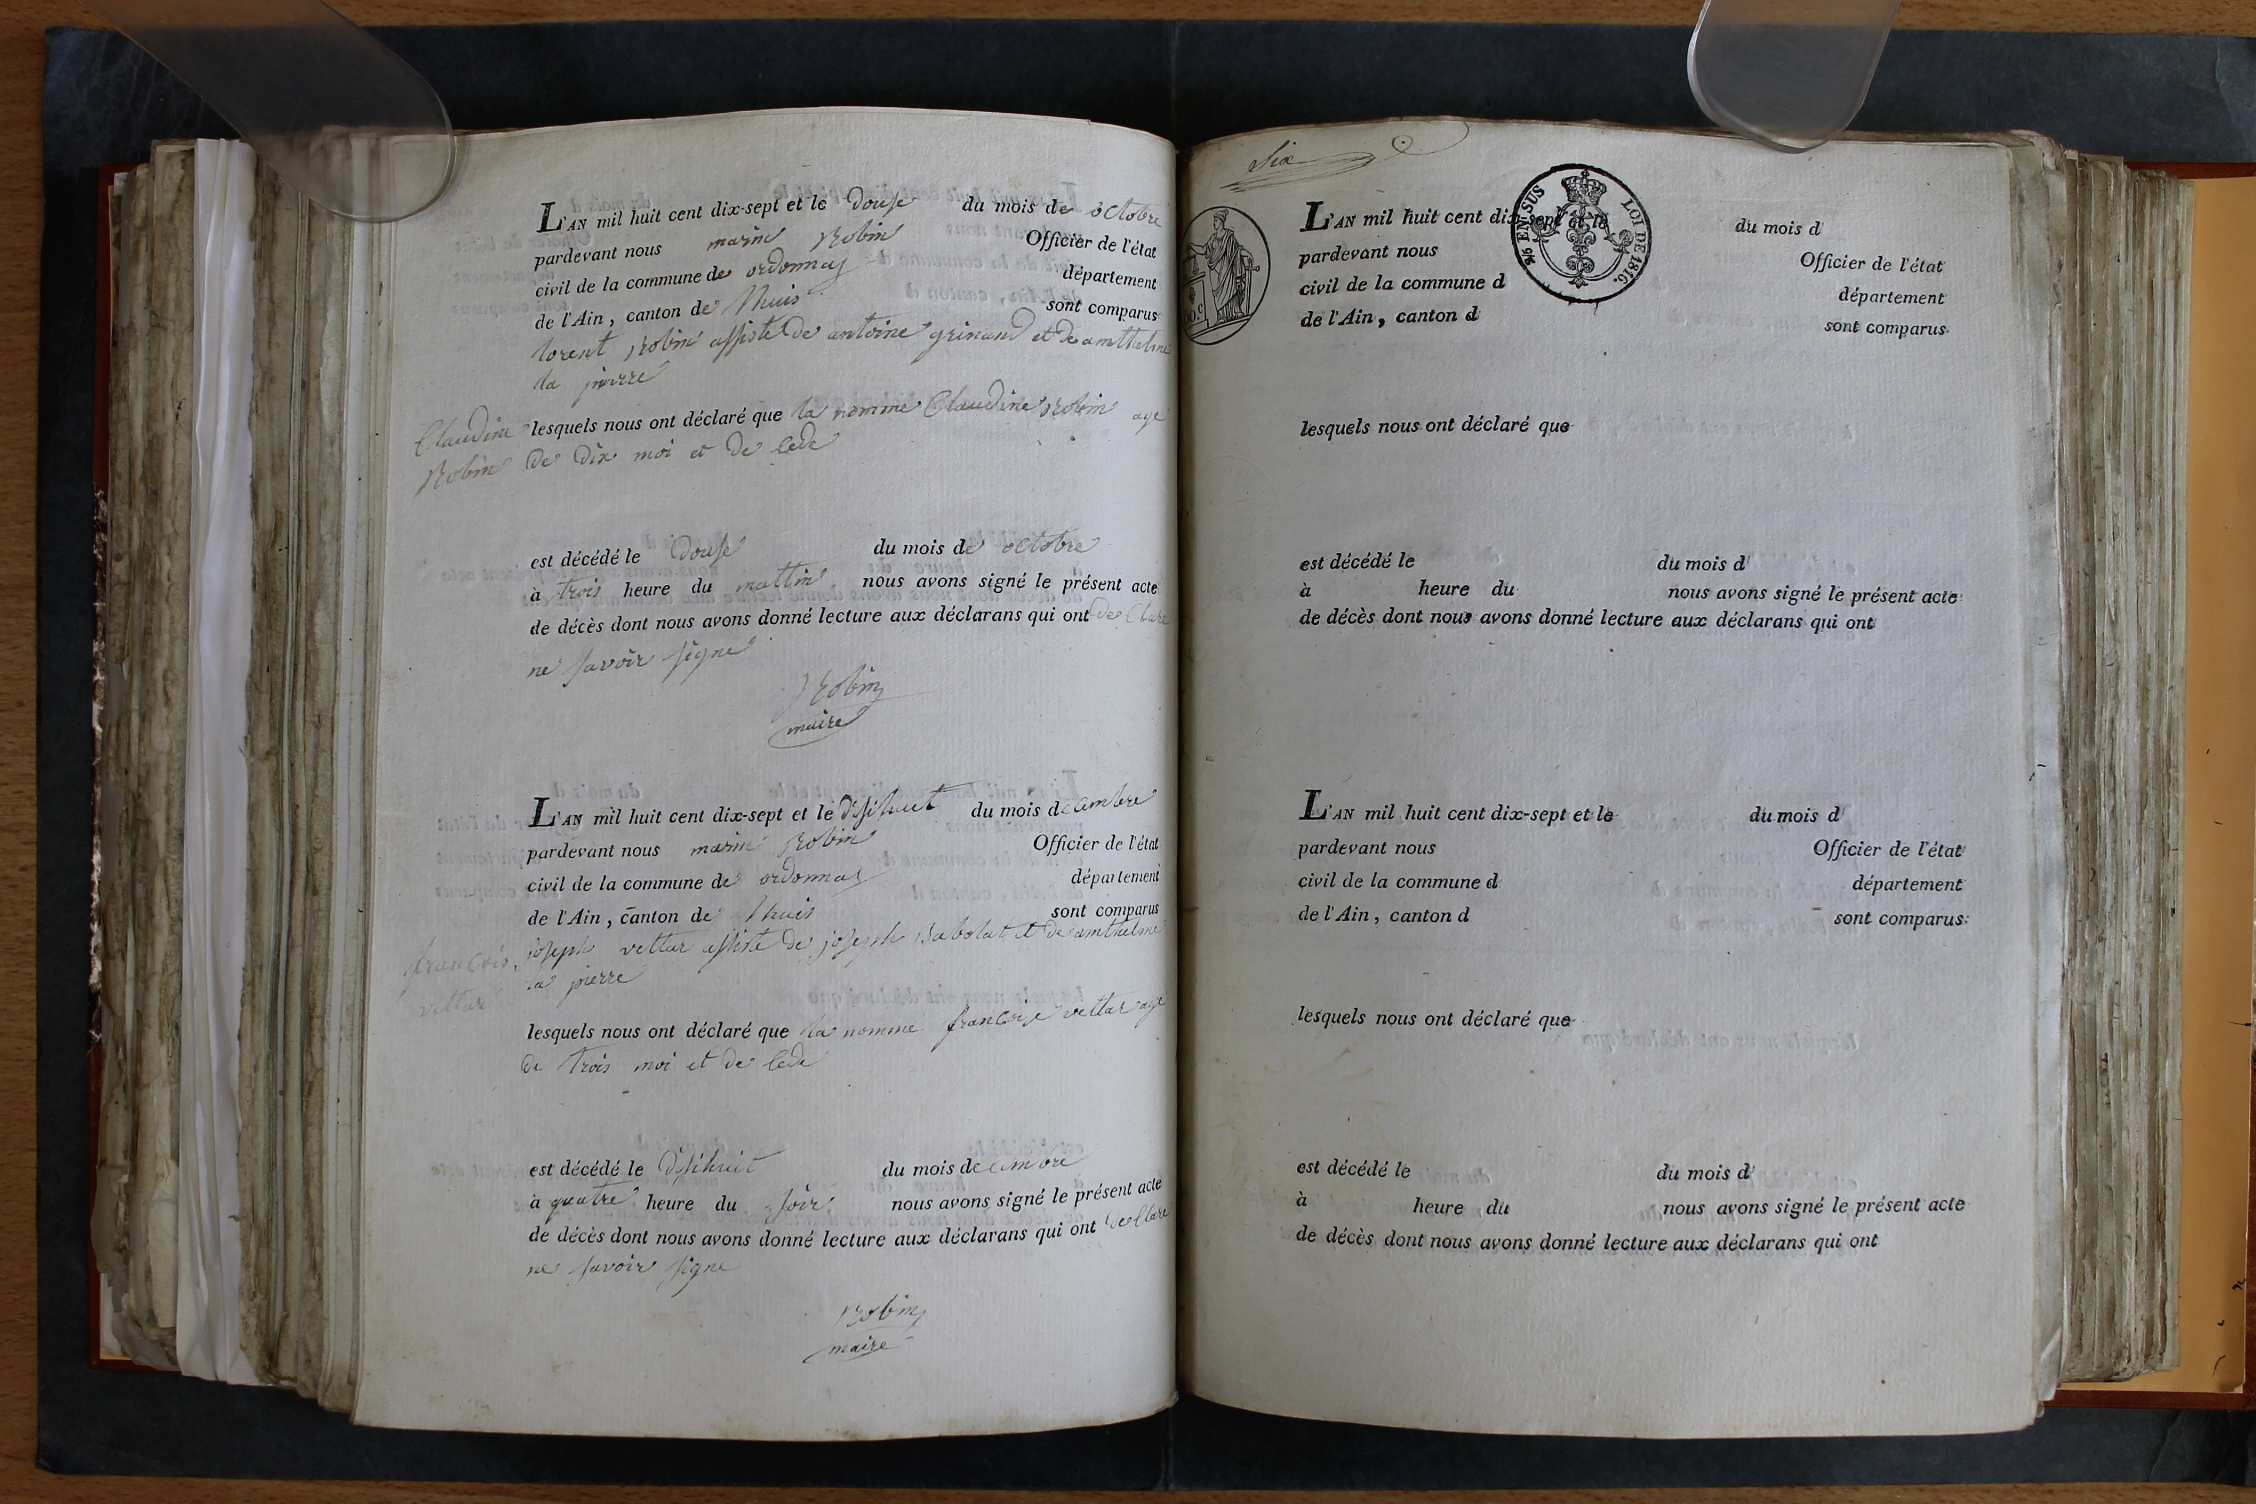 L'AN mil huit cent dix-sept et le douse du mois de octobre
pardevant nous marin Robin Officier de l'état
civil de la commune de ordonnas département
de l'Ain, canton de lhuis sont comparus
lorent Robin assisté de antoine grinand et de amthelme
la pierre
Claudine
Robin
lesquels nous ont déclaré que la nomme Claudine Robin age
de dix moi et de cede
est décédé le douse du mois de octobre
à trois heure du mattin nous avons signé le présent acte
de décès dont nous avons donné lecture aux déclarans qui ont de Clare
ne savoir signe
Robin
maire
L'AN mil huit cent dix-sept et le disihuit du mois de cembre
pardevant nous marin Robin Officier de l'état
civil de la commune de ordonnas département
de l'Ain, canton de lhuis sont comparus
joseph vettar assisté de joseph Babolat et de amthelme
la pierre
francois
vettar
lesquels nous ont déclaré que la nomme francoise vettar age
de trois moi et de cede
est décédé le disihuit du mois de cembre
à quatre heure du soir nous avons signé le présent acte
de décès dont nous avons donné lecture aux déclarans qui ont de Clare
ne savoir signe
Robin
maire
Six
EN SUS LOI DE 1816.
L'AN mil huit cent dix-sept et le du mois d
pardevant nous Officier de l'état
civil de la commune d département
de l'Ain, canton d sont comparus
lesquels nous ont déclaré que
est décédé le du mois d
à heure du nous avons signé le présent acte
de décès dont nous avons donné lecture aux déclarans qui ont
L'AN mil huit cent dix-sept et le du mois d
pardevant nous Officier de l'état
civil de la commune d département
de l'Ain, canton d sont comparus
lesquels nous ont déclaré que
est décédé le du mois d
à heure du nous avons signé le présent acte
de décès dont nous avons donné lecture aux déclarans qui ont